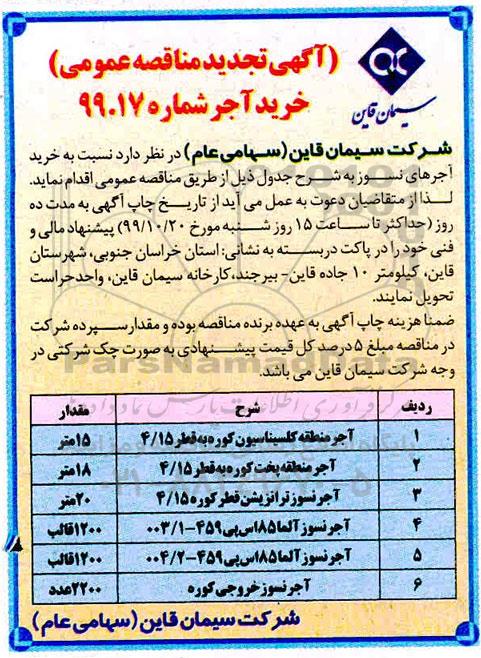 (آگهی تجدید مناقصه عمومی)
خرید آجر شماره ۹۹.۱۷
سیمان قاین
شرکت سیمان قاین (سهامی عام) در نظر دارد نسبت به خرید
آجرهای نسوز به شرح جدول ذیل از طریق مناقصه عمومی اقدام نماید.
لذا از متقاضیان دعوت به عمل می آید از تاریخ چاپ آگهی به مدت ده
روز (حداکثر تا ساعت ۱۵ روز شنبه مورخ ۹۹/۱۰/۲۰) پیشنهاد مالی و
فنی خود را در پاکت دربسته به نشانی: استان خراسان جنوبی، شهرستان
قاین، کیلومتر ۱۰ جاده قاین- بیرجند، کارخانه سیمان قاین، واحد حراست
تحویل نمایند.
ضمنا هزینه چاپ آگهی به عهده برنده مناقصه بوده و مقدار سپرده شرکت
در مناقصه مبلغ ۵ درصد کل قیمت پیشنهادی به صورت چک شرکتی در
وجه شرکت سیمان قاین می باشد.
ردیف شرح مقدار
۱ آجر منطقه کلسیناسیون کوره به قطر ۴/۱۵ ۱۵متر
۲ آجر منطقه پخت کوره به قطر ۴/۱۵ ۱۸متر
۳ آجر نسوز ترانزیشن قطر کوره ۴/۱۵ ۲۰متر
۴ آجر نسوز آلما ۸۵ اس پی ۴۵۹-۰۰۳/۱ ۱۲۰۰قالب
۵ آجر نسوز آلما ۸۵ اس پی ۴۵۹-۰۰۴/۲ ۱۲۰۰قالب
۶ آجر نسوز خروجی کوره ۲۲۰۰عدد
شرکت سیمان قاین (سهامی عام)